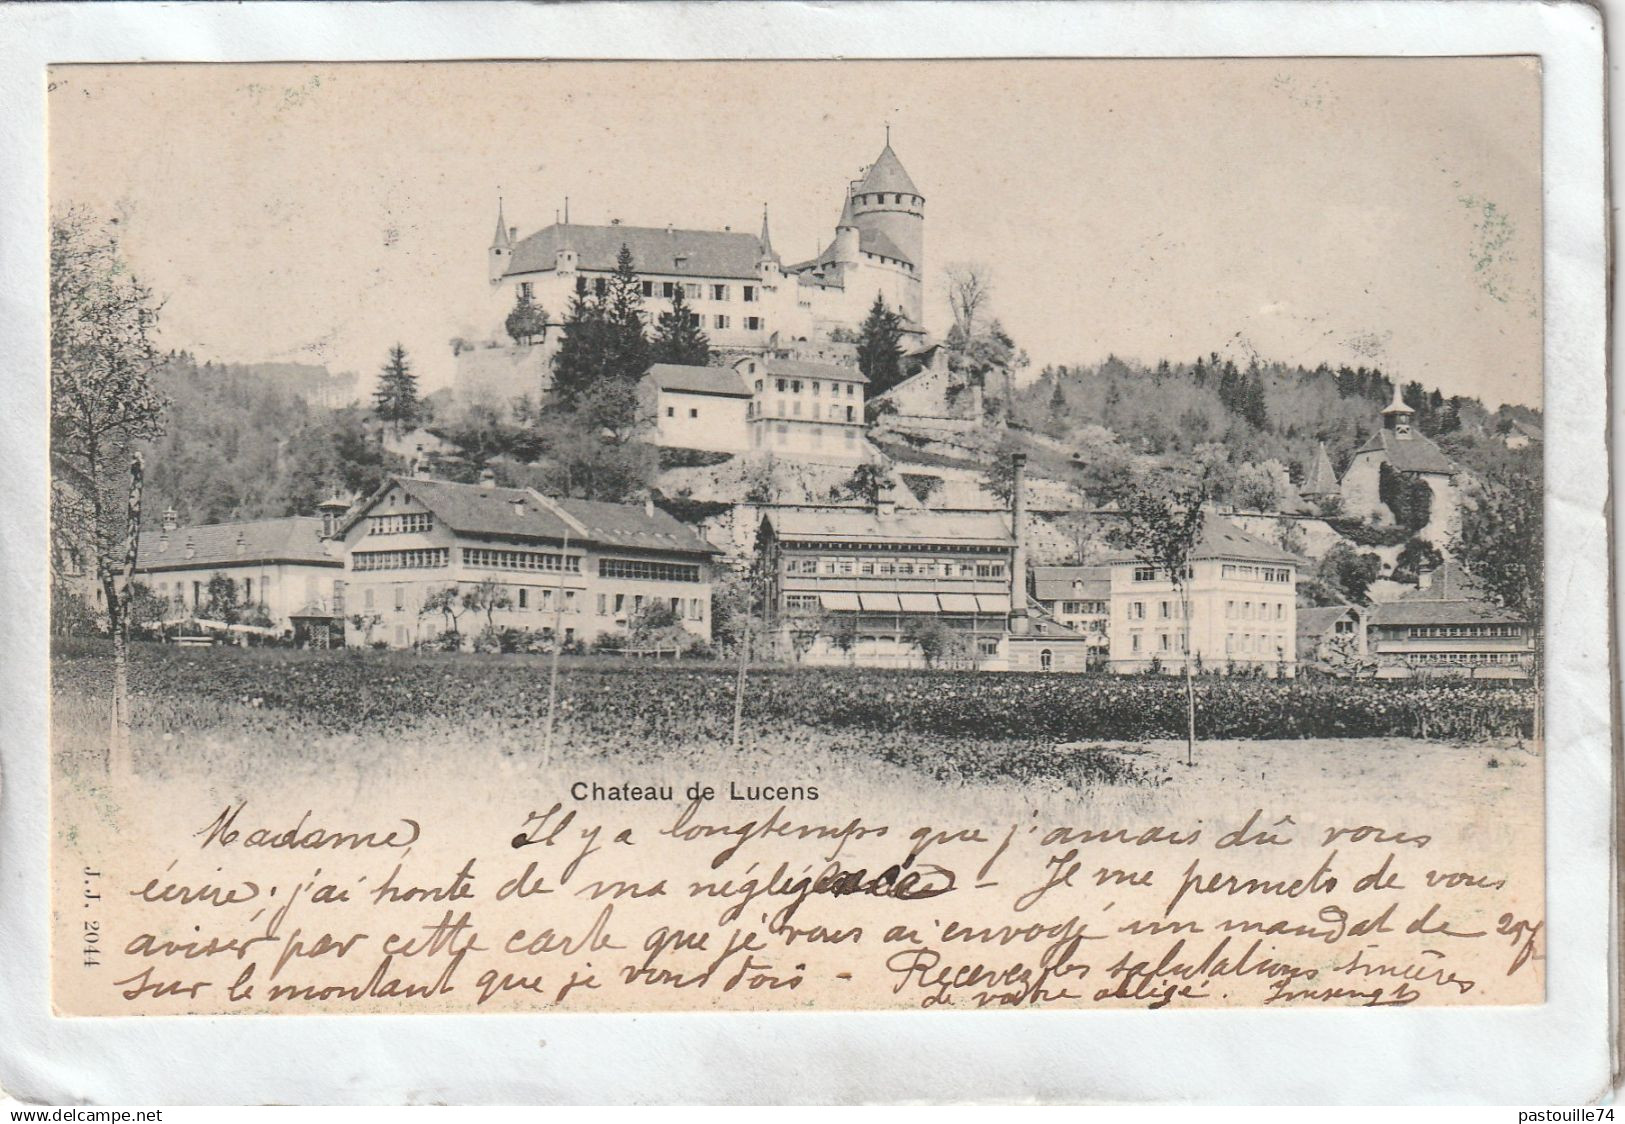 Chateau de Lucens
Madame, Il y a longtemps que j'aurais dû vous
écrire; j'ai honte de ma négligence - Je me permets de vous
aviser par cette carte que je vous ai envoyé un mandat de 25f
sur le montant que je vous dois - Recevez les salutations sincères
de votre obligé.
J. J. 2044
www.delcampe.net
pastouille74